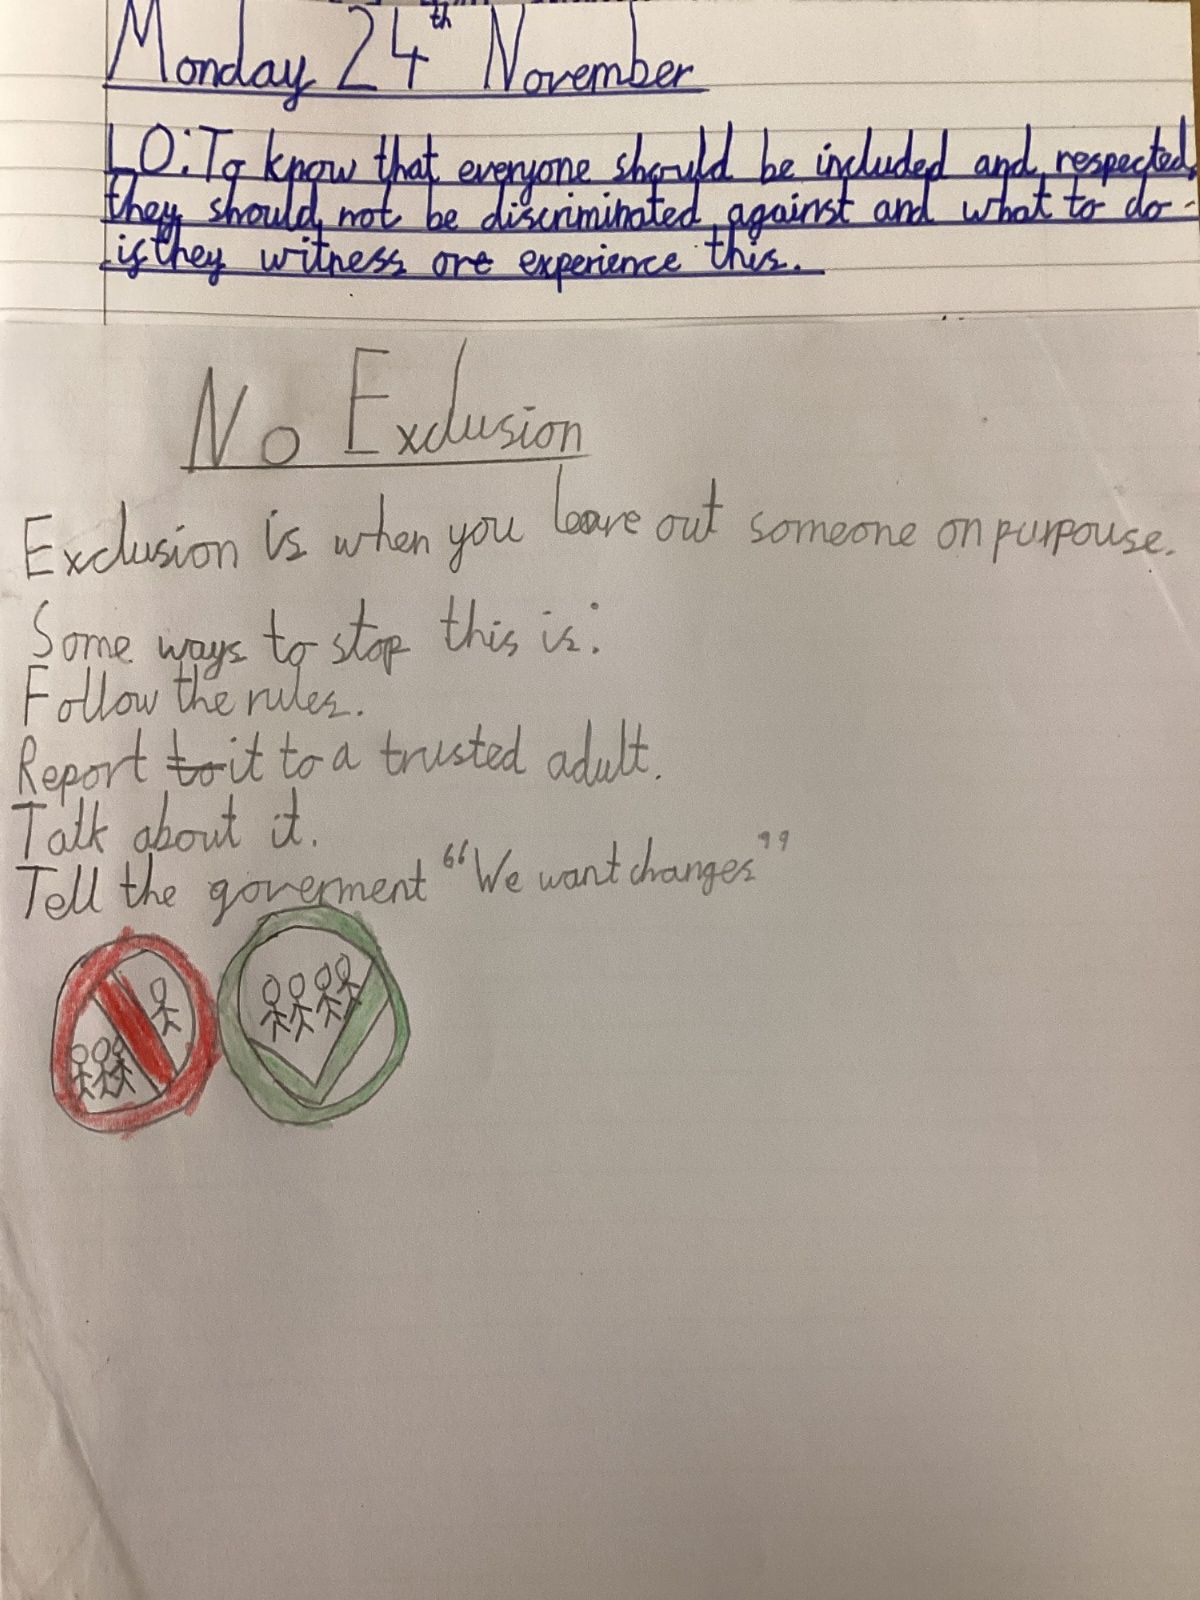 Monday 24th November
LO: To know that everyone should be included and respected,
they should not be discriminated against and what to do
if they witness ore experience this.
No Exclusion
Exclusion is when you leave out someone on purpouse.
Some ways to stop this is:
Follow the rules.
Report to it to a trusted adult.
Talk about it.
Tell the goverment "We want changes"